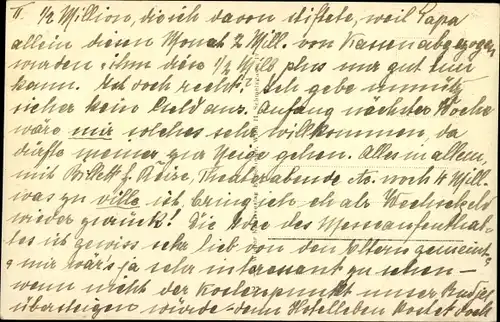 II. 1/2 Million, die ich davon stiftete, weil Papa
allein diesen Monat 2 Mill. von Kassen abgezogen
wurden ihm diese 1/2 Mill plus nur gut tun
kann. Ist doch recht? Ich gebe unnütz
sicher kein Geld aus. Anfang nächster Woche
wäre mir solches sehr willkommen, da
dürfte meiner zur Neige gehen. Alles in allem,
mit Billett f. Reise, Theaterabende etc. noch 4 Mill.
was zu viele ist, bring ich eh als Wechselgeld
wieder zurück! Die Idee des Messeaufenthal-
tes ist gewiss sehr lieb von den Eltern gemeint
mir wär's ja sehr interessant zu sehen –
wenn nicht der Kostenpunkt unser Budget
übersteigen würde – denn Hotelleben kostet doch